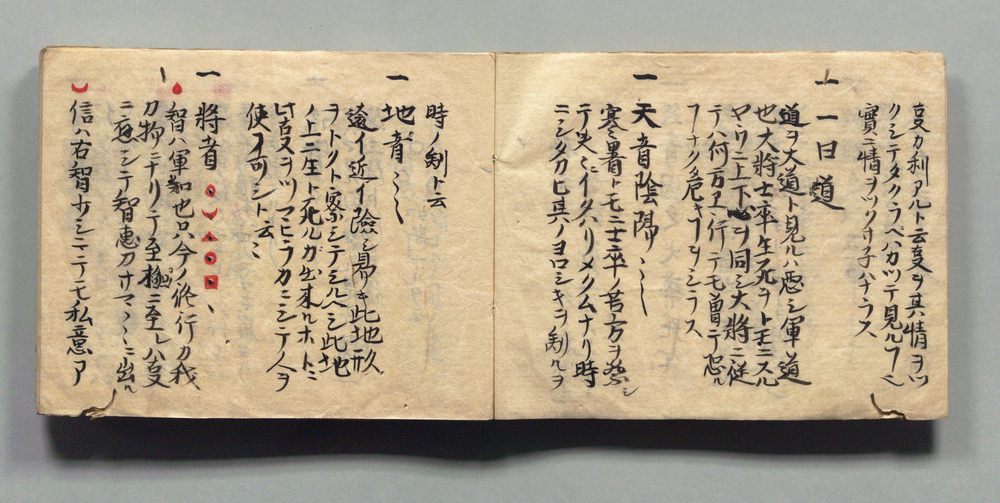 叓カ利アルト云叓ヲ其情ヲツ
クシテタクラベハカツテ見ルヿニ
實ニ情ヲツクサ子ハナラス
一 一曰道
道ヲ大道ト見ルハ悪シ軍道
也大將士卒生死ヲトモニスル
ヤウニ上下心ヲ同シ大將ニ従
テハ何方エ行テモ曽テ恐ル
ヿナク危キヿヲシラス
一 天者陰陽〻〻
寒暑トモニ士卒ノ苦労ヲ察シ
テ夫〻イタハリメクムナリ時
ニシタカヒ其ノヨロシキヲ制ルヲ
時ノ制ト云
一 地者〻〻
遠イ近イ險シ易キ此地形
ヲトクト察シテシルヘシ此地
ノ上ニ生ト死ルガ出来ルホトニ
此叓ヲツマヒラカニシテ人ヲ
使フ可シト云〻
一 將者
智ハ軍知也只今ノ修行カ我
カ物ニナリテ至極ニ至レハ叓
ニ應シテ智惠カサマ〻〻ニ出ル
信ハ右智少シニテモ私意ア